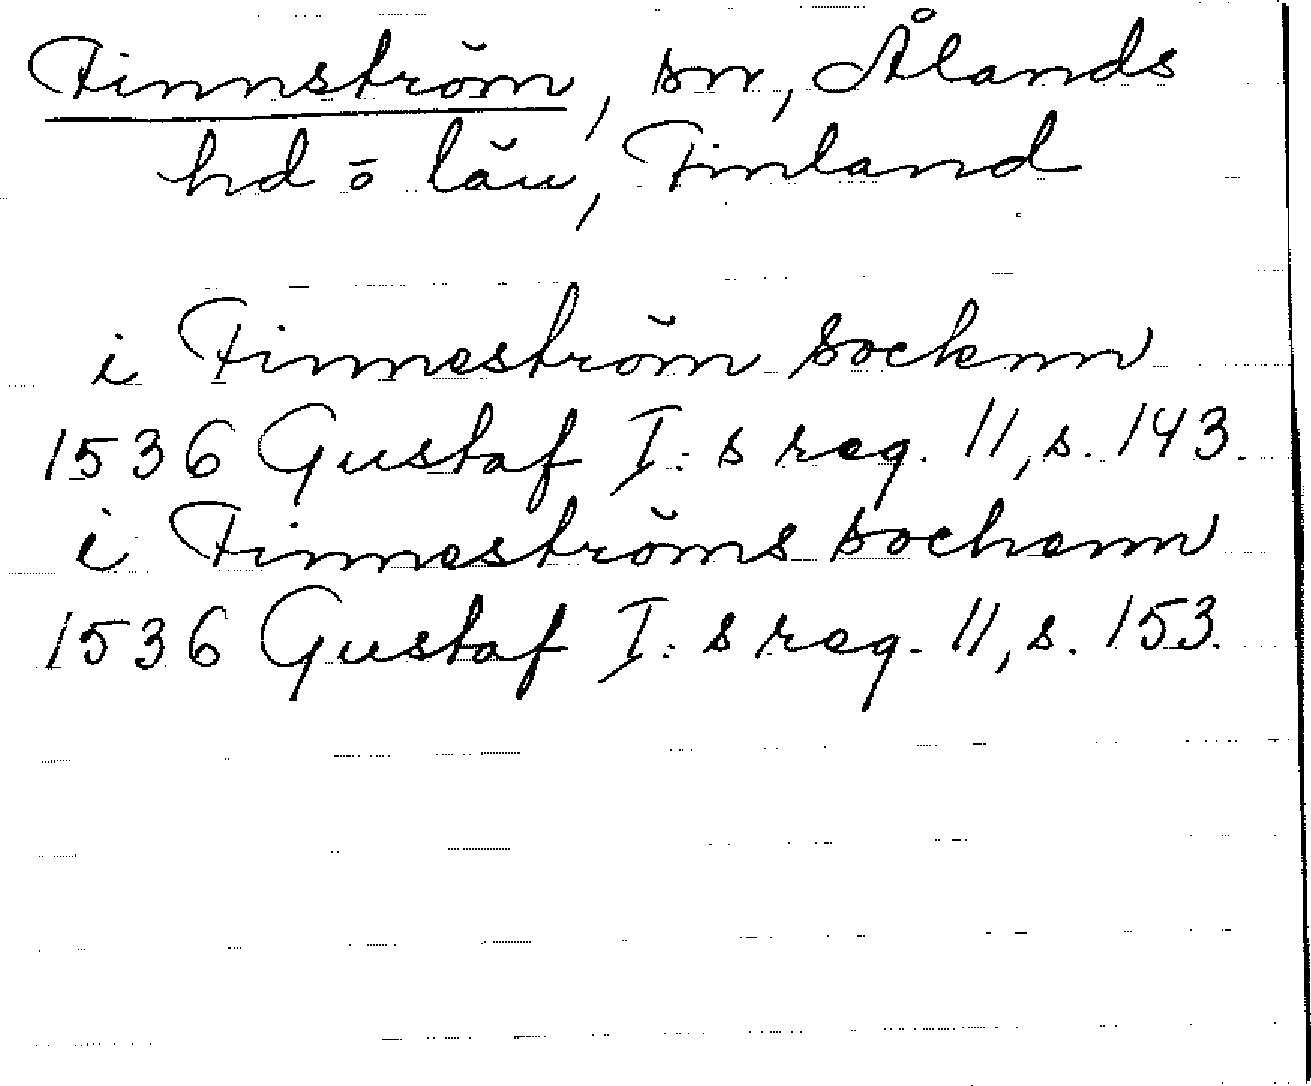 Finnström, sn, Ålands
hd o län, Finland
i Finneström socknn
1536 Gustaf I:s reg. 11, s. 143.
i Finneströms sochenn
1536 Gustaf I:s reg. 11, s. 153.